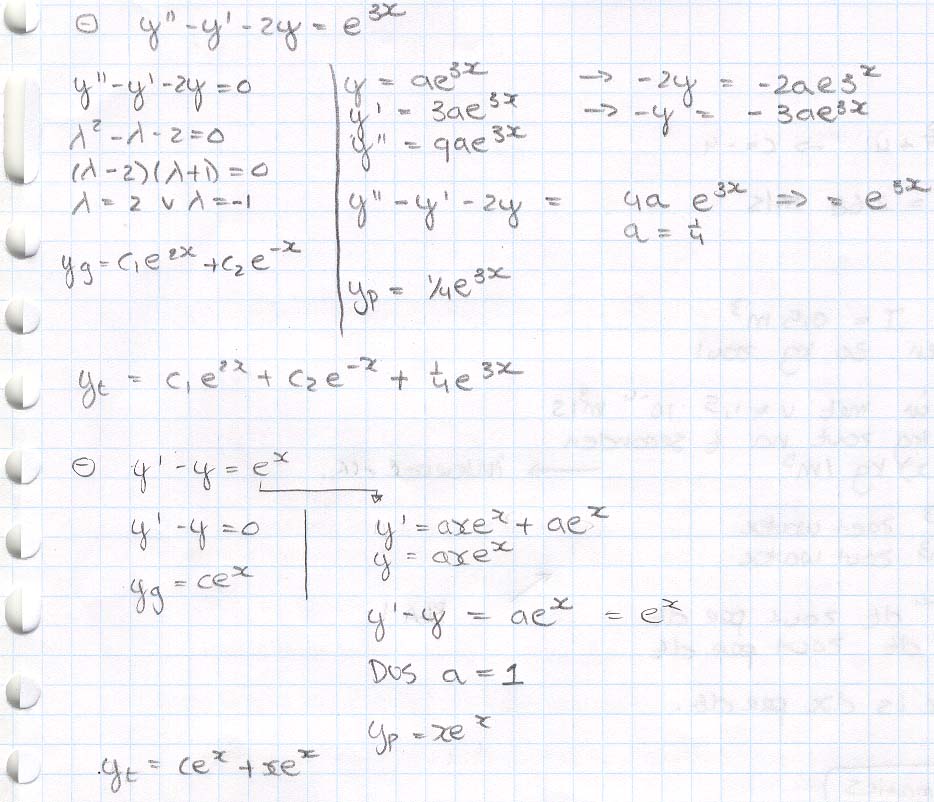 ⊖ y'' - y' - 2y = e^{3x}
y'' - y' - 2y = 0
λ² - λ - 2 = 0
(λ - 2)(λ + 1) = 0
λ = 2 ∨ λ = -1
y_g = c₁e^{2x} + c₂e^{-x}
y = ae^{3x} → -2y = -2ae3^x
y' = 3ae^{3x} → -y = -3ae^{3x}
y'' = 9ae^{3x}
y'' - y' - 2y = 4a e^{3x} ⇒ = e^{3x}
a = ¼
y_p = ¼e^{3x}
y_t = c₁e^{2x} + c₂e^{-x} + ¼e^{3x}
⊖ y' - y = e^x
y' - y = 0
y_g = ce^x
y' = axe^x + ae^x
y = axe^x
y' - y = ae^x = e^x
DUS a = 1
y_p = xe^x
y_t = ce^x + xe^x